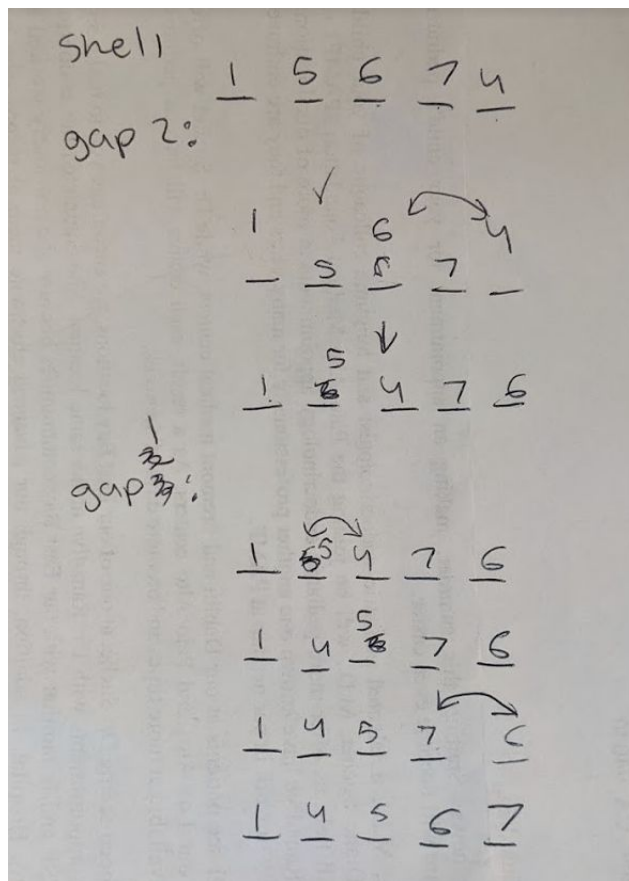 Shell
1 5 6 7 4
gap 2:
1 6 4
5 7
5
1 4 7 6
1
gap :
1 5 4 7 6
5
1 4 7 6
1 4 5 7 6
1 4 5 6 7